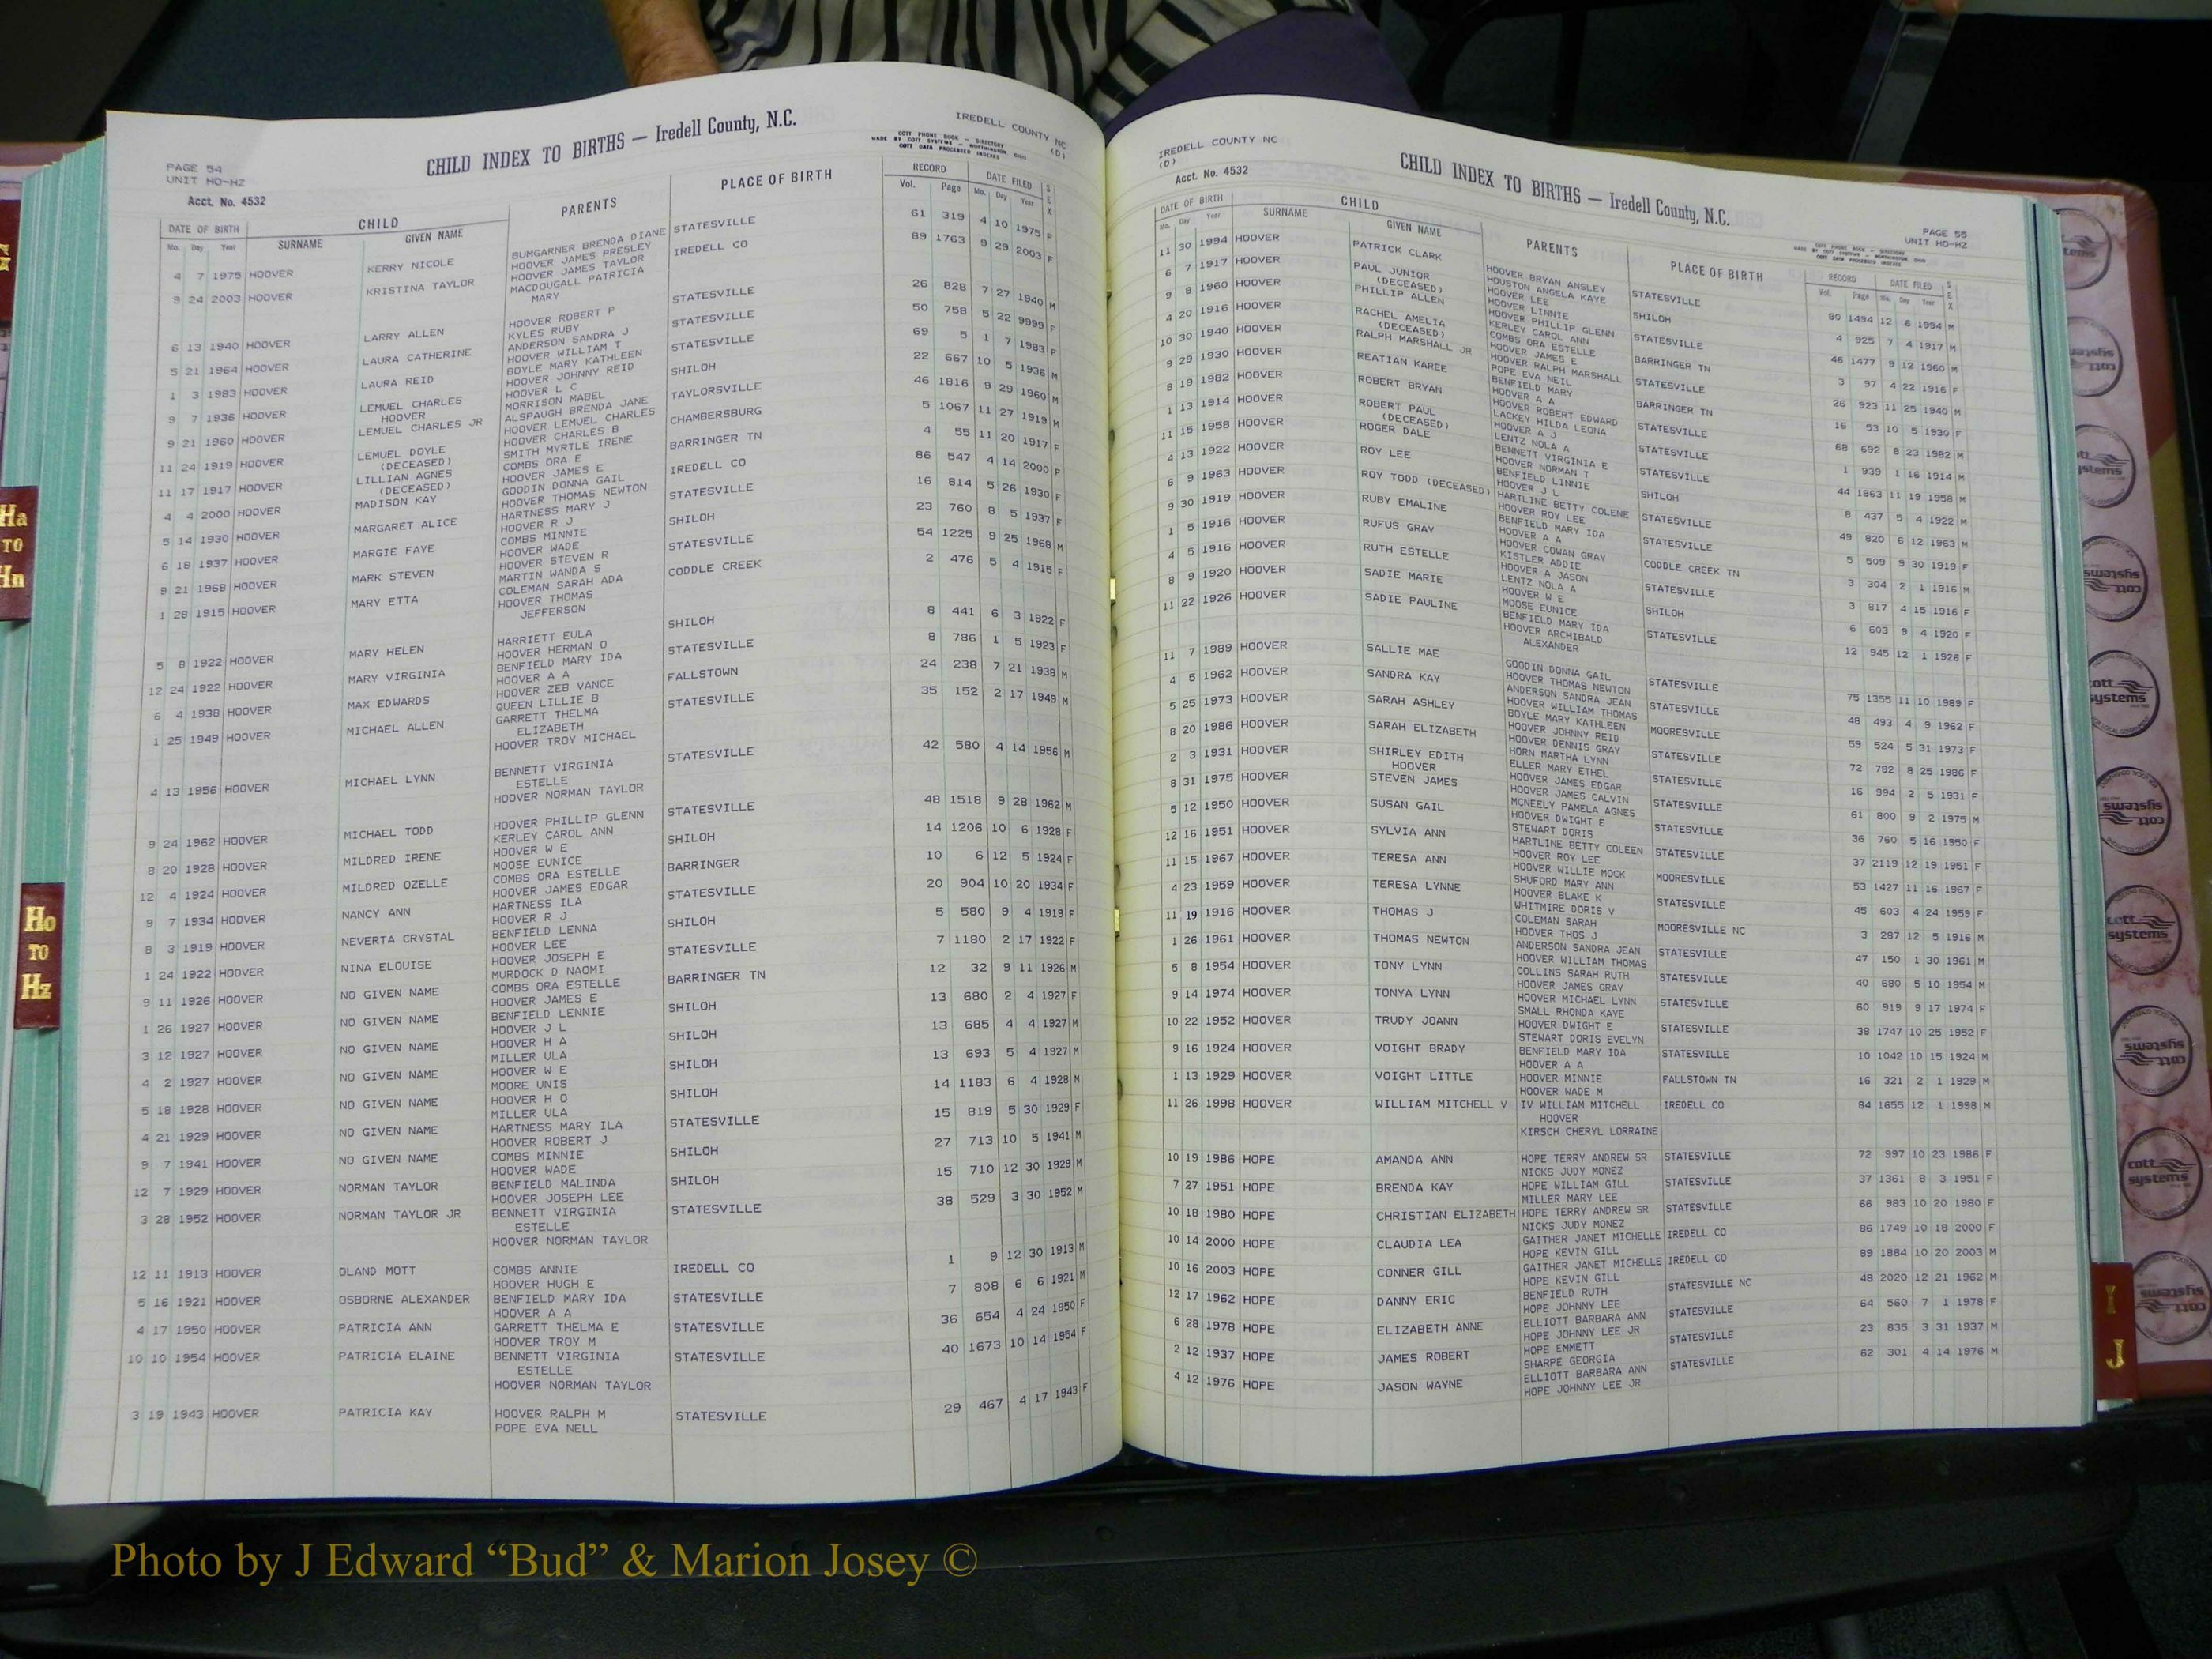 PAGE 54
UNIT HO-HZ
Acct. No. 4532
CHILD INDEX TO BIRTHS — Iredell County, N.C.
IREDELL COUNTY NC
(D)
COTT PHONE BOOK — DIRECTORY
MADE BY COTT SYSTEMS — WORTHINGTON OHIO
COTT DATA PROCESSED INDEXES
DATE OF BIRTH CHILD PARENTS PLACE OF BIRTH RECORD DATE FILED SEX
Mo. Day Year SURNAME GIVEN NAME Vol. Page Mo. Day Year
4 7 1975 HOOVER KERRY NICOLE BUMGARNER BRENDA DIANE STATESVILLE 61 319 4 10 1975 F
HOOVER JAMES PRESLEY
9 24 2003 HOOVER KRISTINA TAYLOR HOOVER JAMES TAYLOR IREDELL CO 89 1763 9 29 2003 F
MACDOUGALL PATRICIA
MARY
6 13 1940 HOOVER LARRY ALLEN HOOVER ROBERT P STATESVILLE 26 828 7 27 1940 M
KYLES RUBY
5 21 1964 HOOVER LAURA CATHERINE ANDERSON SANDRA J STATESVILLE 50 758 5 22 9999 F
HOOVER WILLIAM T
1 3 1983 HOOVER LAURA REID BOYLE MARY KATHLEEN STATESVILLE 69 5 1 7 1983 F
HOOVER JOHNNY REID
9 7 1936 HOOVER LEMUEL CHARLES HOOVER L C SHILOH 22 667 10 5 1936 M
HOOVER MORRISON MABEL
9 21 1960 HOOVER LEMUEL CHARLES JR ALSPAUGH BRENDA JANE TAYLORSVILLE 46 1816 9 29 1960 M
HOOVER LEMUEL CHARLES
11 24 1919 HOOVER LEMUEL DOYLE HOOVER CHARLES B CHAMBERSBURG 5 1067 11 27 1919 M
(DECEASED) SMITH MYRTLE IRENE
11 17 1917 HOOVER LILLIAN AGNES COMBS ORA E BARRINGER TN 4 55 11 20 1917 F
(DECEASED) HOOVER JAMES E
4 4 2000 HOOVER MADISON KAY GOODIN DONNA GAIL IREDELL CO 86 547 4 14 2000 F
HOOVER THOMAS NEWTON
5 14 1930 HOOVER MARGARET ALICE HARTNESS MARY J STATESVILLE 16 814 5 26 1930 F
HOOVER R J
6 18 1937 HOOVER MARGIE FAYE COMBS MINNIE SHILOH 23 760 8 5 1937 F
HOOVER WADE
9 21 1968 HOOVER MARK STEVEN HOOVER STEVEN R STATESVILLE 54 1225 9 25 1968 M
MARTIN WANDA S
1 28 1915 HOOVER MARY ETTA COLEMAN SARAH ADA CODDLE CREEK 2 476 5 4 1915 F
HOOVER THOMAS
JEFFERSON
5 8 1922 HOOVER MARY HELEN HARRIETT EULA SHILOH 8 441 6 3 1922 F
HOOVER HERMAN O
12 24 1922 HOOVER MARY VIRGINIA BENFIELD MARY IDA STATESVILLE 8 786 1 5 1923 F
HOOVER A A
6 4 1938 HOOVER MAX EDWARDS HOOVER ZEB VANCE FALLSTOWN 24 238 7 21 1938 M
QUEEN LILLIE B
1 25 1949 HOOVER MICHAEL ALLEN GARRETT THELMA STATESVILLE 35 152 2 17 1949 M
ELIZABETH
HOOVER TROY MICHAEL
4 13 1956 HOOVER MICHAEL LYNN BENNETT VIRGINIA STATESVILLE 42 580 4 14 1956 M
ESTELLE
HOOVER NORMAN TAYLOR
9 24 1962 HOOVER MICHAEL TODD HOOVER PHILLIP GLENN STATESVILLE 48 1518 9 28 1962 M
KERLEY CAROL ANN
8 20 1928 HOOVER MILDRED IRENE HOOVER W E SHILOH 14 1206 10 6 1928 F
MOOSE EUNICE
12 4 1924 HOOVER MILDRED OZELLE COMBS ORA ESTELLE BARRINGER 10 6 12 5 1924 F
HOOVER JAMES EDGAR
9 7 1934 HOOVER NANCY ANN HARTNESS ILA STATESVILLE 20 904 10 20 1934 F
HOOVER R J
8 3 1919 HOOVER NEVERTA CRYSTAL BENFIELD LENNA SHILOH 5 580 9 4 1919 F
HOOVER LEE
1 24 1922 HOOVER NINA ELOUISE HOOVER JOSEPH E STATESVILLE 7 1180 2 17 1922 F
MURDOCK D NAOMI
9 11 1926 HOOVER NO GIVEN NAME COMBS ORA ESTELLE BARRINGER TN 12 32 9 11 1926 M
HOOVER JAMES E
1 26 1927 HOOVER NO GIVEN NAME BENFIELD LENNIE SHILOH 13 680 2 4 1927 F
HOOVER J L
3 12 1927 HOOVER NO GIVEN NAME HOOVER H A SHILOH 13 685 4 4 1927 M
MILLER ULA
4 2 1927 HOOVER NO GIVEN NAME HOOVER W E SHILOH 13 693 5 4 1927 M
MOORE UNIS
5 18 1928 HOOVER NO GIVEN NAME HOOVER H O SHILOH 14 1183 6 4 1928 M
MILLER ULA
4 21 1929 HOOVER NO GIVEN NAME HARTNESS MARY ILA STATESVILLE 15 819 5 30 1929 F
HOOVER ROBERT J
9 7 1941 HOOVER NO GIVEN NAME COMBS MINNIE SHILOH 27 713 10 5 1941 M
HOOVER WADE
12 7 1929 HOOVER NORMAN TAYLOR BENFIELD MALINDA SHILOH 15 710 12 30 1929 M
HOOVER JOSEPH LEE
3 28 1952 HOOVER NORMAN TAYLOR JR BENNETT VIRGINIA STATESVILLE 38 529 3 30 1952 M
ESTELLE
HOOVER NORMAN TAYLOR
12 11 1913 HOOVER OLAND MOTT COMBS ANNIE IREDELL CO 1 9 12 30 1913 M
HOOVER HUGH E
5 16 1921 HOOVER OSBORNE ALEXANDER BENFIELD MARY IDA STATESVILLE 7 808 6 6 1921 M
HOOVER A A
4 17 1950 HOOVER PATRICIA ANN GARRETT THELMA E STATESVILLE 36 654 4 24 1950 F
HOOVER TROY M
10 10 1954 HOOVER PATRICIA ELAINE BENNETT VIRGINIA STATESVILLE 40 1673 10 14 1954 F
ESTELLE
HOOVER NORMAN TAYLOR
3 19 1943 HOOVER PATRICIA KAY HOOVER RALPH M STATESVILLE 29 467 4 17 1943 F
POPE EVA NELL
IREDELL COUNTY NC
(D)
Acct. No. 4532
CHILD INDEX TO BIRTHS — Iredell County, N.C.
PAGE 55
UNIT HO-HZ
COTT PHONE BOOK — DIRECTORY
MADE BY COTT SYSTEMS — WORTHINGTON OHIO
COTT DATA PROCESSED INDEXES
DATE OF BIRTH CHILD PARENTS PLACE OF BIRTH RECORD DATE FILED SEX
Mo. Day Year SURNAME GIVEN NAME Vol. Page Mo. Day Year
11 30 1994 HOOVER PATRICK CLARK HOOVER BRYAN ANSLEY STATESVILLE 80 1494 12 6 1994 M
HOUSTON ANGELA KAYE
6 7 1917 HOOVER PAUL JUNIOR HOOVER LEE SHILOH 4 925 7 4 1917 M
(DECEASED) HOOVER LINNIE
9 8 1960 HOOVER PHILLIP ALLEN HOOVER PHILLIP GLENN STATESVILLE 46 1477 9 12 1960 M
KERLEY CAROL ANN
4 20 1916 HOOVER RACHEL AMELIA COMBS ORA ESTELLE BARRINGER TN 3 97 4 22 1916 F
(DECEASED) HOOVER JAMES E
10 30 1940 HOOVER RALPH MARSHALL JR HOOVER RALPH MARSHALL STATESVILLE 26 923 11 25 1940 M
POPE EVA NEIL
9 29 1930 HOOVER REATIAN KAREE BENFIELD MARY BARRINGER TN 16 53 10 5 1930 F
HOOVER A A
8 19 1982 HOOVER ROBERT BRYAN HOOVER ROBERT EDWARD STATESVILLE 68 692 8 23 1982 M
LACKEY HILDA LEONA
1 13 1914 HOOVER ROBERT PAUL HOOVER A J STATESVILLE 1 939 1 16 1914 M
(DECEASED) LENTZ NOLA A
11 15 1958 HOOVER ROGER DALE BENNETT VIRGINIA E STATESVILLE 44 1863 11 19 1958 M
HOOVER NORMAN T
4 13 1922 HOOVER ROY LEE BENFIELD LINNIE SHILOH 8 437 5 4 1922 M
HOOVER J L
6 9 1963 HOOVER ROY TODD (DECEASED) HARTLINE BETTY COLENE STATESVILLE 49 820 6 12 1963 M
HOOVER ROY LEE
9 30 1919 HOOVER RUBY EMALINE BENFIELD MARY IDA STATESVILLE 5 509 9 30 1919 F
HOOVER A A
1 5 1916 HOOVER RUFUS GRAY HOOVER COWAN GRAY CODDLE CREEK TN 3 304 2 1 1916 M
KISTLER ADDIE
4 5 1916 HOOVER RUTH ESTELLE HOOVER A JASON STATESVILLE 3 817 4 15 1916 F
LENTZ NOLA A
8 9 1920 HOOVER SADIE MARIE HOOVER W E SHILOH 6 603 9 4 1920 F
MOOSE EUNICE
11 22 1926 HOOVER SADIE PAULINE BENFIELD MARY IDA STATESVILLE 12 945 12 1 1926 F
HOOVER ARCHIBALD
ALEXANDER
11 7 1989 HOOVER SALLIE MAE GOODIN DONNA GAIL STATESVILLE 75 1355 11 10 1989 F
HOOVER THOMAS NEWTON
4 5 1962 HOOVER SANDRA KAY ANDERSON SANDRA JEAN STATESVILLE 48 493 4 9 1962 F
HOOVER WILLIAM THOMAS
5 25 1973 HOOVER SARAH ASHLEY BOYLE MARY KATHLEEN MOORESVILLE 59 524 5 31 1973 F
HOOVER JOHNNY REID
8 20 1986 HOOVER SARAH ELIZABETH HOOVER DENNIS GRAY STATESVILLE 72 782 8 25 1986 F
HORN MARTHA LYNN
2 3 1931 HOOVER SHIRLEY EDITH ELLER MARY ETHEL STATESVILLE 16 994 2 5 1931 F
HOOVER HOOVER JAMES EDGAR
8 31 1975 HOOVER STEVEN JAMES HOOVER JAMES CALVIN STATESVILLE 61 800 9 2 1975 M
MCNEELY PAMELA AGNES
5 12 1950 HOOVER SUSAN GAIL HOOVER DWIGHT E STATESVILLE 36 760 5 16 1950 F
STEWART DORIS
12 16 1951 HOOVER SYLVIA ANN HARTLINE BETTY COLEEN STATESVILLE 37 2119 12 19 1951 F
HOOVER ROY LEE
11 15 1967 HOOVER TERESA ANN HOOVER WILLIE MOCK MOORESVILLE 53 1427 11 16 1967 F
SHUFORD MARY ANN
4 23 1959 HOOVER TERESA LYNNE HOOVER BLAKE K STATESVILLE 45 603 4 24 1959 F
WHITMIRE DORIS V
11 19 1916 HOOVER THOMAS J COLEMAN SARAH MOORESVILLE NC 3 287 12 5 1916 M
HOOVER THOS J
1 26 1961 HOOVER THOMAS NEWTON ANDERSON SANDRA JEAN STATESVILLE 47 150 1 30 1961 M
HOOVER WILLIAM THOMAS
5 8 1954 HOOVER TONY LYNN COLLINS SARAH RUTH STATESVILLE 40 680 5 10 1954 M
HOOVER JAMES GRAY
9 14 1974 HOOVER TONYA LYNN HOOVER MICHAEL LYNN STATESVILLE 60 919 9 17 1974 F
SMALL RHONDA KAYE
10 22 1952 HOOVER TRUDY JOANN HOOVER DWIGHT E STATESVILLE 38 1747 10 25 1952 F
STEWART DORIS EVELYN
9 16 1924 HOOVER VOIGHT BRADY BENFIELD MARY IDA STATESVILLE 10 1042 10 15 1924 M
HOOVER A A
1 13 1929 HOOVER VOIGHT LITTLE HOOVER MINNIE FALLSTOWN TN 16 321 2 1 1929 M
HOOVER WADE M
11 26 1998 HOOVER WILLIAM MITCHELL V IV WILLIAM MITCHELL IREDELL CO 84 1655 12 1 1998 M
HOOVER
KIRSCH CHERYL LORRAINE
10 19 1986 HOPE AMANDA ANN HOPE TERRY ANDREW SR STATESVILLE 72 997 10 23 1986 F
NICKS JUDY MONEZ
7 27 1951 HOPE BRENDA KAY HOPE WILLIAM GILL STATESVILLE 37 1361 8 3 1951 F
MILLER MARY LEE
10 18 1980 HOPE CHRISTIAN ELIZABETH HOPE TERRY ANDREW SR STATESVILLE 66 983 10 20 1980 F
NICKS JUDY MONEZ
10 14 2000 HOPE CLAUDIA LEA GAITHER JANET MICHELLE IREDELL CO 86 1749 10 18 2000 F
HOPE KEVIN GILL
10 16 2003 HOPE CONNER GILL GAITHER JANET MICHELLE IREDELL CO 89 1884 10 20 2003 M
HOPE KEVIN GILL
12 17 1962 HOPE DANNY ERIC BENFIELD RUTH STATESVILLE NC 48 2020 12 21 1962 M
HOPE JOHNNY LEE
6 28 1978 HOPE ELIZABETH ANNE ELLIOTT BARBARA ANN STATESVILLE 64 560 7 1 1978 F
HOPE JOHNNY LEE JR
2 12 1937 HOPE JAMES ROBERT HOPE EMMETT STATESVILLE 23 835 3 31 1937 M
SHARPE GEORGIA
4 12 1976 HOPE JASON WAYNE ELLIOTT BARBARA ANN STATESVILLE 62 301 4 14 1976 M
HOPE JOHNNY LEE JR
Ha
TO
Hn
Ho
TO
Hz
I
J
cott
systems
Photo by J Edward “Bud” & Marion Josey ©